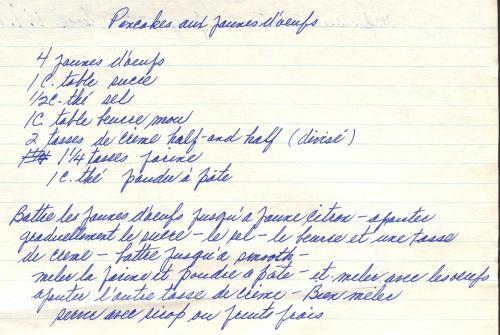 Pancakes aux jaunes d'oeufs
4 jaunes d'oeufs
1 C. table sucre
1/2 C. thé sel
1 C. table beurre mou
2 tasses de crème half-and half (divisé)
1 1/4 tasses farine
1 C. thé poudre à pâte
Battre les jaunes d'oeufs jusqu'à jaune citron - ajouter
graduellement le sucre - le sel - le beurre et une tasse
de crème - battre jusqu'à smooth -
mêler la farine et poudre à pâte - et mêler avec les oeufs
ajouter l'autre tasse de crème - Bien mêler
servir avec sirop ou fruits frais